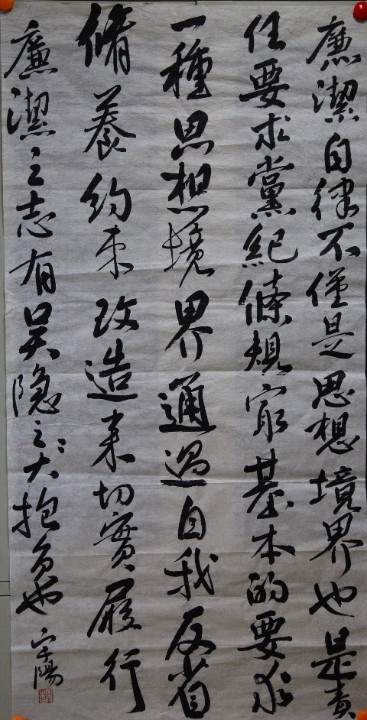 廉潔自律不僅是思想境界也是責
任要求黨紀條規寂基本的要求
一種思想境界通過自我反省
脩養約束改造来切實履行
廉潔之志有吴隐之大抱负也